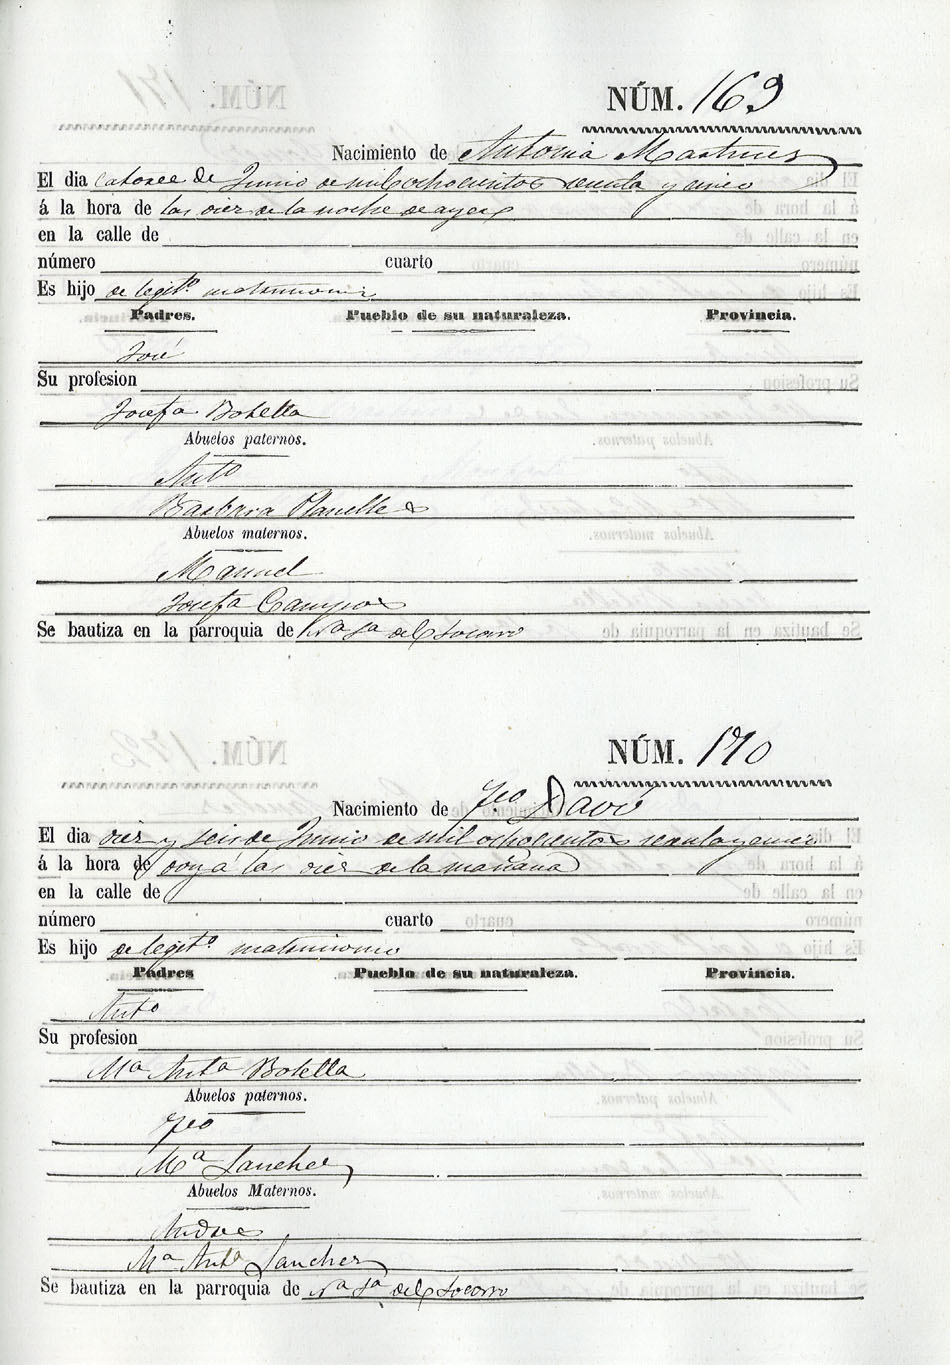 NÚM. 169
Nacimiento de Antonia Martinez
El dia catorce de Junio de mil ochocientos sesenta y cinco
á la hora de las diez de la noche de ayer
en la calle de
número cuarto
Es hijo de legitº. matrimonio
Padres. Pueblo de su naturaleza. Provincia.
José
Su profesion
Josefa Botella
Abuelos paternos.
Antº
Barbara Planelles
Abuelos maternos.
Manuel
Josefa Campos
Se bautiza en la parroquia de Nª Sª del Socorro
NÚM. 170
Nacimiento de Fco Davó
El dia diez y seis de Junio de mil ochocientos sesenta y cinco
á la hora de hoy á las diez de la mañana
en la calle de
número cuarto
Es hijo de legitº. matrimonio
Padres Pueblo de su naturaleza. Provincia.
Antº
Su profesion
Mª Antª Botella
Abuelos paternos.
Fco
Mª Sanchez
Abuelos Maternos.
Andres
Mª Antª Sanchez
Se bautiza en la parroquia de Nª Sª del Socorro